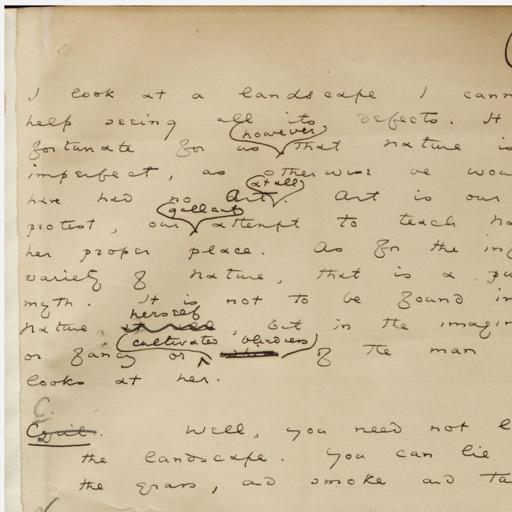 I look at a landscape I cann
help seeing all its defects. It
fortunate for us, however, that nature is
imperfect, as otherwise we wou
have had no Art at all. Art is our
protest, our gallant attempt to teach Na
her proper place. As for the inf
variety of Nature, that is a pu
myth. It is not to be found in
Nature herself, but in the imagin
or fancy or cultivated blindness of the man
looks at her.
C.
Cyril. Well, you need not l
the landscape. You can lie
the grass, and smoke and ta